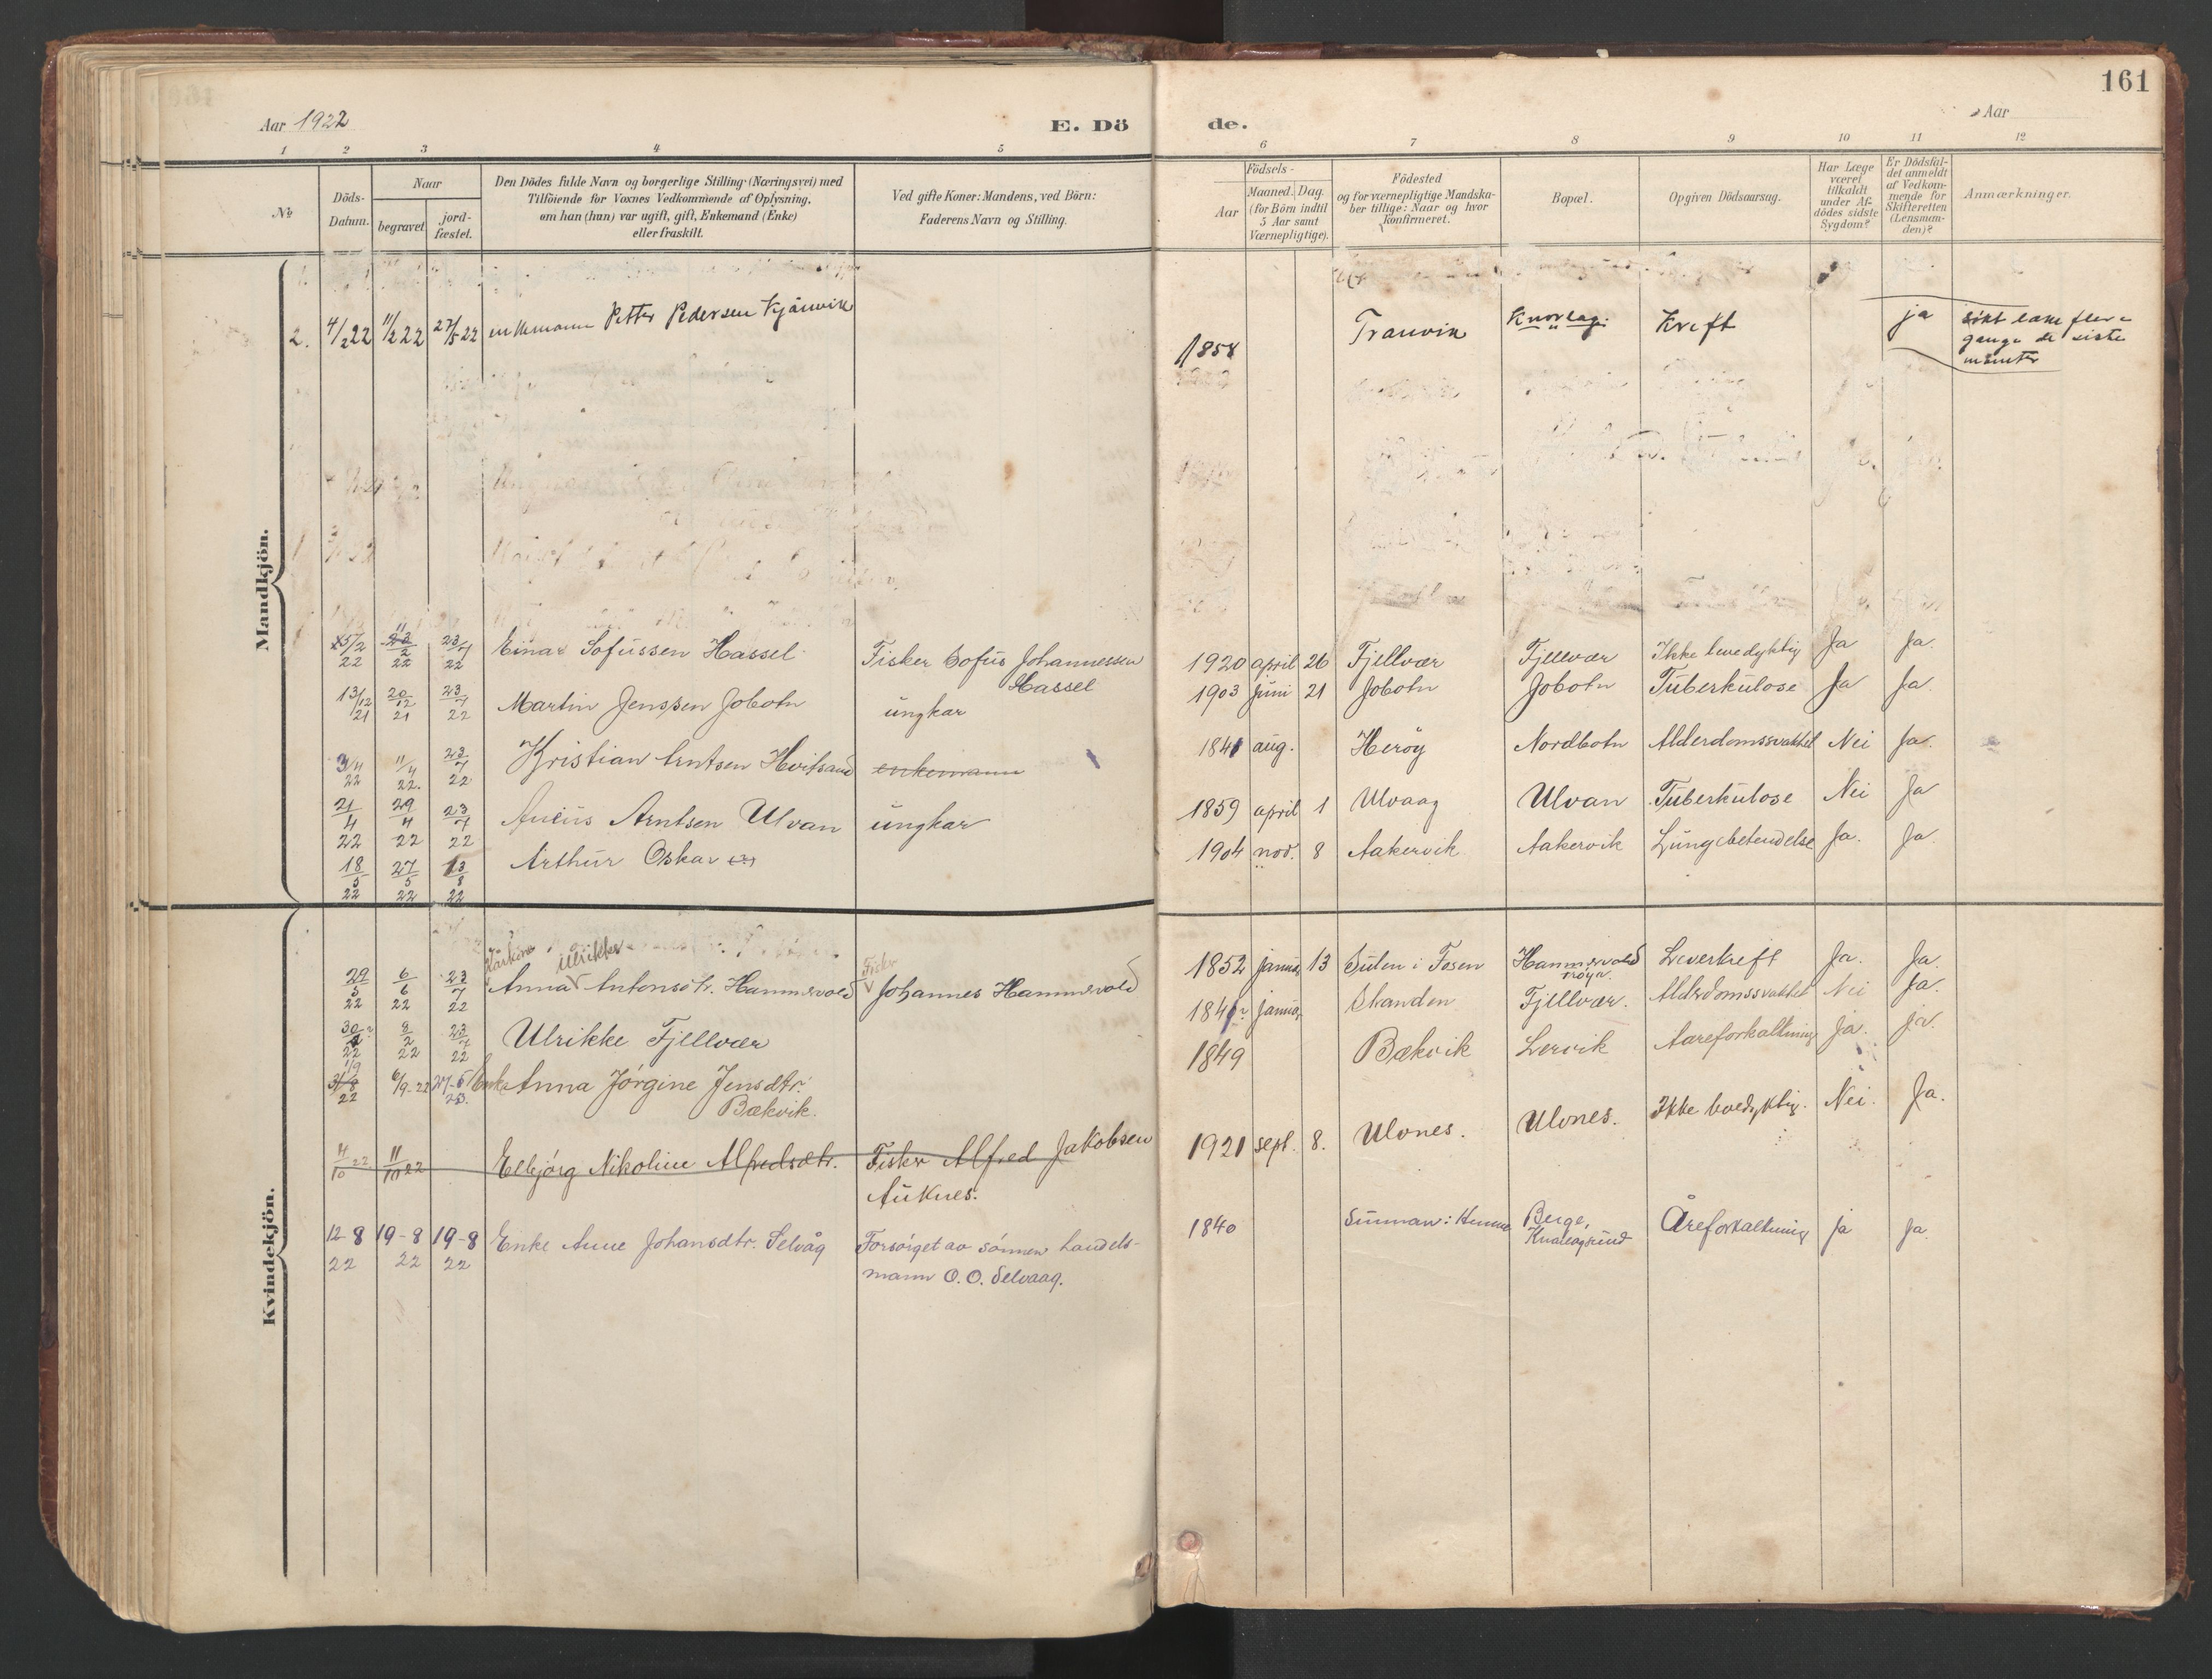 161
Aar 1922
E. Dö
de.
Aar
1 2 3 4 5 6 7 8 9 10 11 12
№
Döds-
Datum.
Naar
begravet
jord-
fæstet.
Den Dödes fulde Navn og borgerlige Stilling (Næringsvei) med
Tilföiende for Voxnes Vedkommende af Oplysning,
om han (hun) var ugift, gift, Enkemand (Enke)
eller fraskilt.
Ved gifte Koner: Mandens, ved Börn:
Faderens Navn og Stilling.
Födsels-
Aar
Maaned. Dag.
(for Börn indtil
5 Aar samt
Værnepligtige).
Födested
og for værnepligtige Mandska-
ber tillige: Naar og hvor
konfirmeret.
Bopæl.
Opgiven Dödsaarsag.
Har Læge
været
tilkaldt
under Af-
dödes sidste
Sygdom?
Er Dödsfal-
det anmeldt
af Vedkom-
mende for
Skifteretten
(Lensman-
den)?
Anmærkninger.
Mandkjön.
2. 4/2 22 11/2 22 27/5 22 enkemann Petter Pedersen Kjånvik 1858 Tranvik Knarlag. Kreft ja
gange de siste
15/2 22 11 23/2 22 23/7 22 Einar Sofussen Hassel Fisker Sofus Johannessen
Hassel
1920 april 26 Fjellvær Fjellvær Ikke levedyktig Ja Ja.
13/12 21 20/12 21 23/7 22 Martin Jenssen Jobotn ungkar 1903 juni 21 Jobotn Jobotn Tuberkulose Ja Ja
3/4 22 11/4 22. 23/7 22 Kristian Arntsen Hvitsand enkemann 1841 aug. Herøy Nordbotn Alderdomssvakhet Nei Ja.
21/4 22 29/4 22 23/7 22 Arntsen Ulvan ungkar 1859 april 1 Ulvaag Ulvan Tuberkulose Nei Ja
18/5 22 27/5 22 13/8 22 Arthur Oskar 1904 nov. 8 Aakervik Aakervik Lungebetendelse Ja. Ja.
Kvindekjön.
Kårkone Ulrikke Fisker
29/5 22 6/6 22 23/7 22 Anna Antonsdtr. Hammervold Johannes Hammervold 1852 januar 13 Sulen i Fosen Hammervold
Leverkreft Ja. Ja.
30/1 22 8/2 22 23/7 22 Ulrikke Fjellvær 1841? januar Stranden Fjellvær. Alderdomssvakhet Nei Ja.
1/9 31/8 22 6/9-22 27-5 23. Enke Anna Jørgine Jensdtr.
Bækvik.
1849 Bækvik Lervik Aareforkalkning Ja. Ja.
4/10 22 11/10 22 Elbjørg Nikoline Alfredsdtr. Fisker Alfred Jakobsen
Auknes.
1921 sept. 8. Ulvnes. Ulvnes. Ikke levedyktig. Nei. Ja.
12-8 22 19-8 22 19-8 22 Enke Anne Johansdtr. Selvåg Forsörget av sönnen handels-
mann O. O. Selvaag.
1840 Berge,
Knarlagsund
Åreforkalkning ja ja.